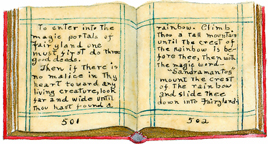 To enter into the
magic portals of
fairyland one
must first do three
good deeds.
Then if there is
no malice in thy
heart toward any
living creature, look
far and wide until
thou hast found a
501
rainbow. Climb
thou a tall mountain
until the crest of
the Rainbow is be-
fore thee, then with
the magic word—
"Sandramantis"
mount the crest
of the rainbow
and slide thee
down into fairyland.
502